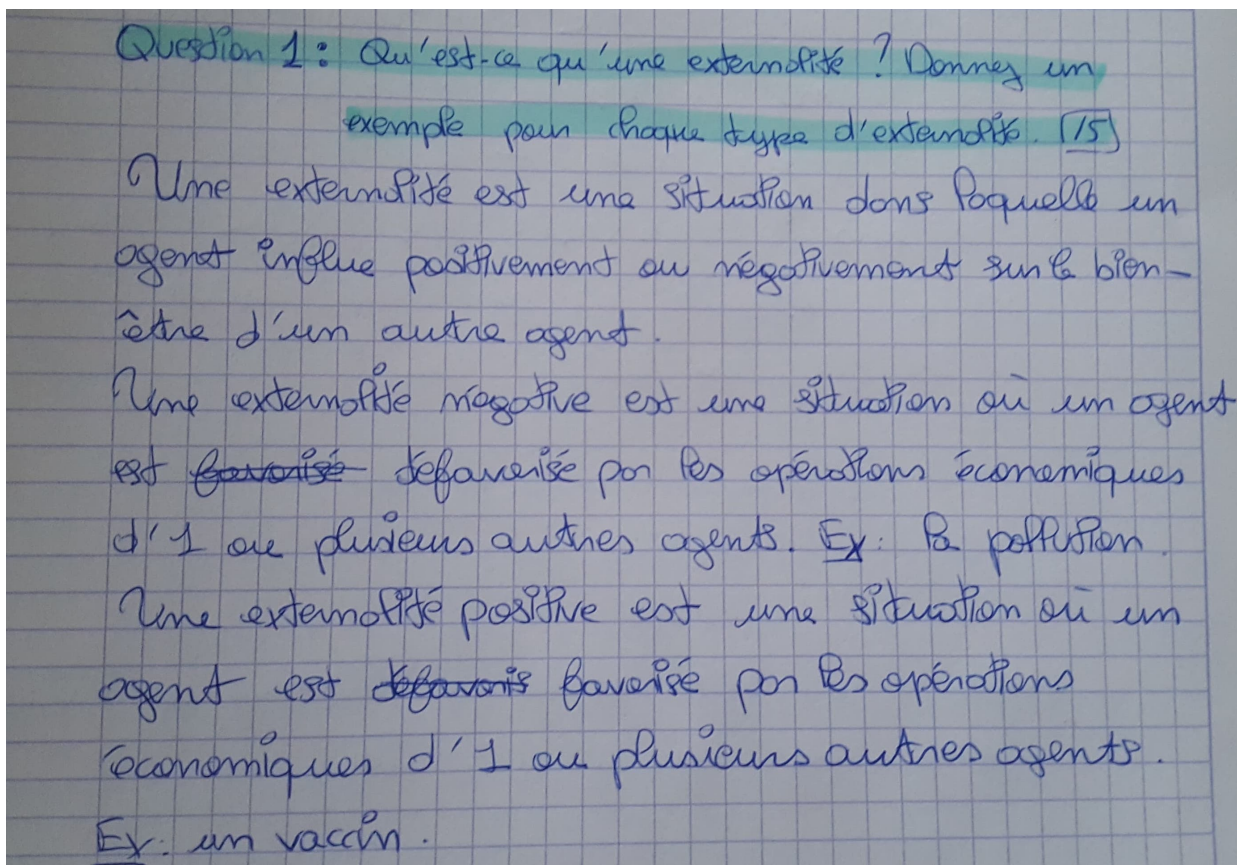 Question 1 : Qu'est-ce qu'une externalité ? Donnez un
exemple pour chaque type d'externalité. /5
Une externalité est une situation dans laquelle un
agent influe positivement ou négativement sur le bien-
être d'un autre agent.
Une externalité négative est une situation où un agent
est favorisé défavorisé par les opérations économiques
d'1 ou plusieurs autres agents. Ex : la pollution.
Une externalité positive est une situation où un
agent est défavoris favorisé par les opérations
économiques d'1 ou plusieurs autres agents.
Ex : un vaccin.